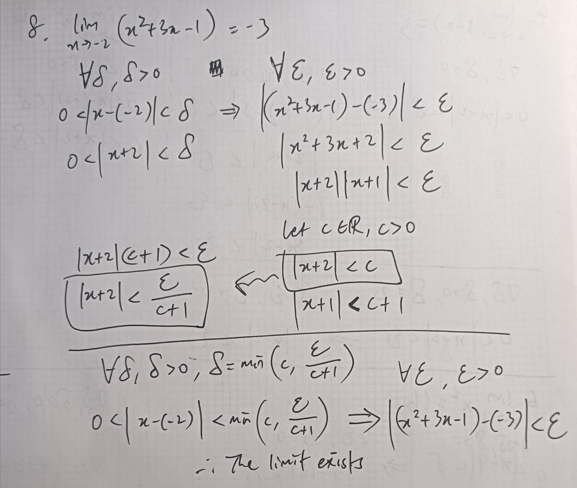 8. lim x→-2 (x²+3x-1) = -3
∀δ, δ>0 ∀ε, ε>0
0<|x-(-2)|<δ ⇒ |(x²+3x-1)-(-3)|<ε
0<|x+2|<δ |x²+3x+2|<ε
|x+2||x+1|<ε
let c∈ℝ, c>0
|x+2|(c+1)<ε |x+2|<c
|x+2|<ε/(c+1) |x+1|<c+1
∀δ, δ>0, δ=min(c, ε/(c+1)) ∀ε, ε>0
0<|x-(-2)|<min(c, ε/(c+1)) ⇒ |(x²+3x-1)-(-3)|<ε
∴ The limit exists